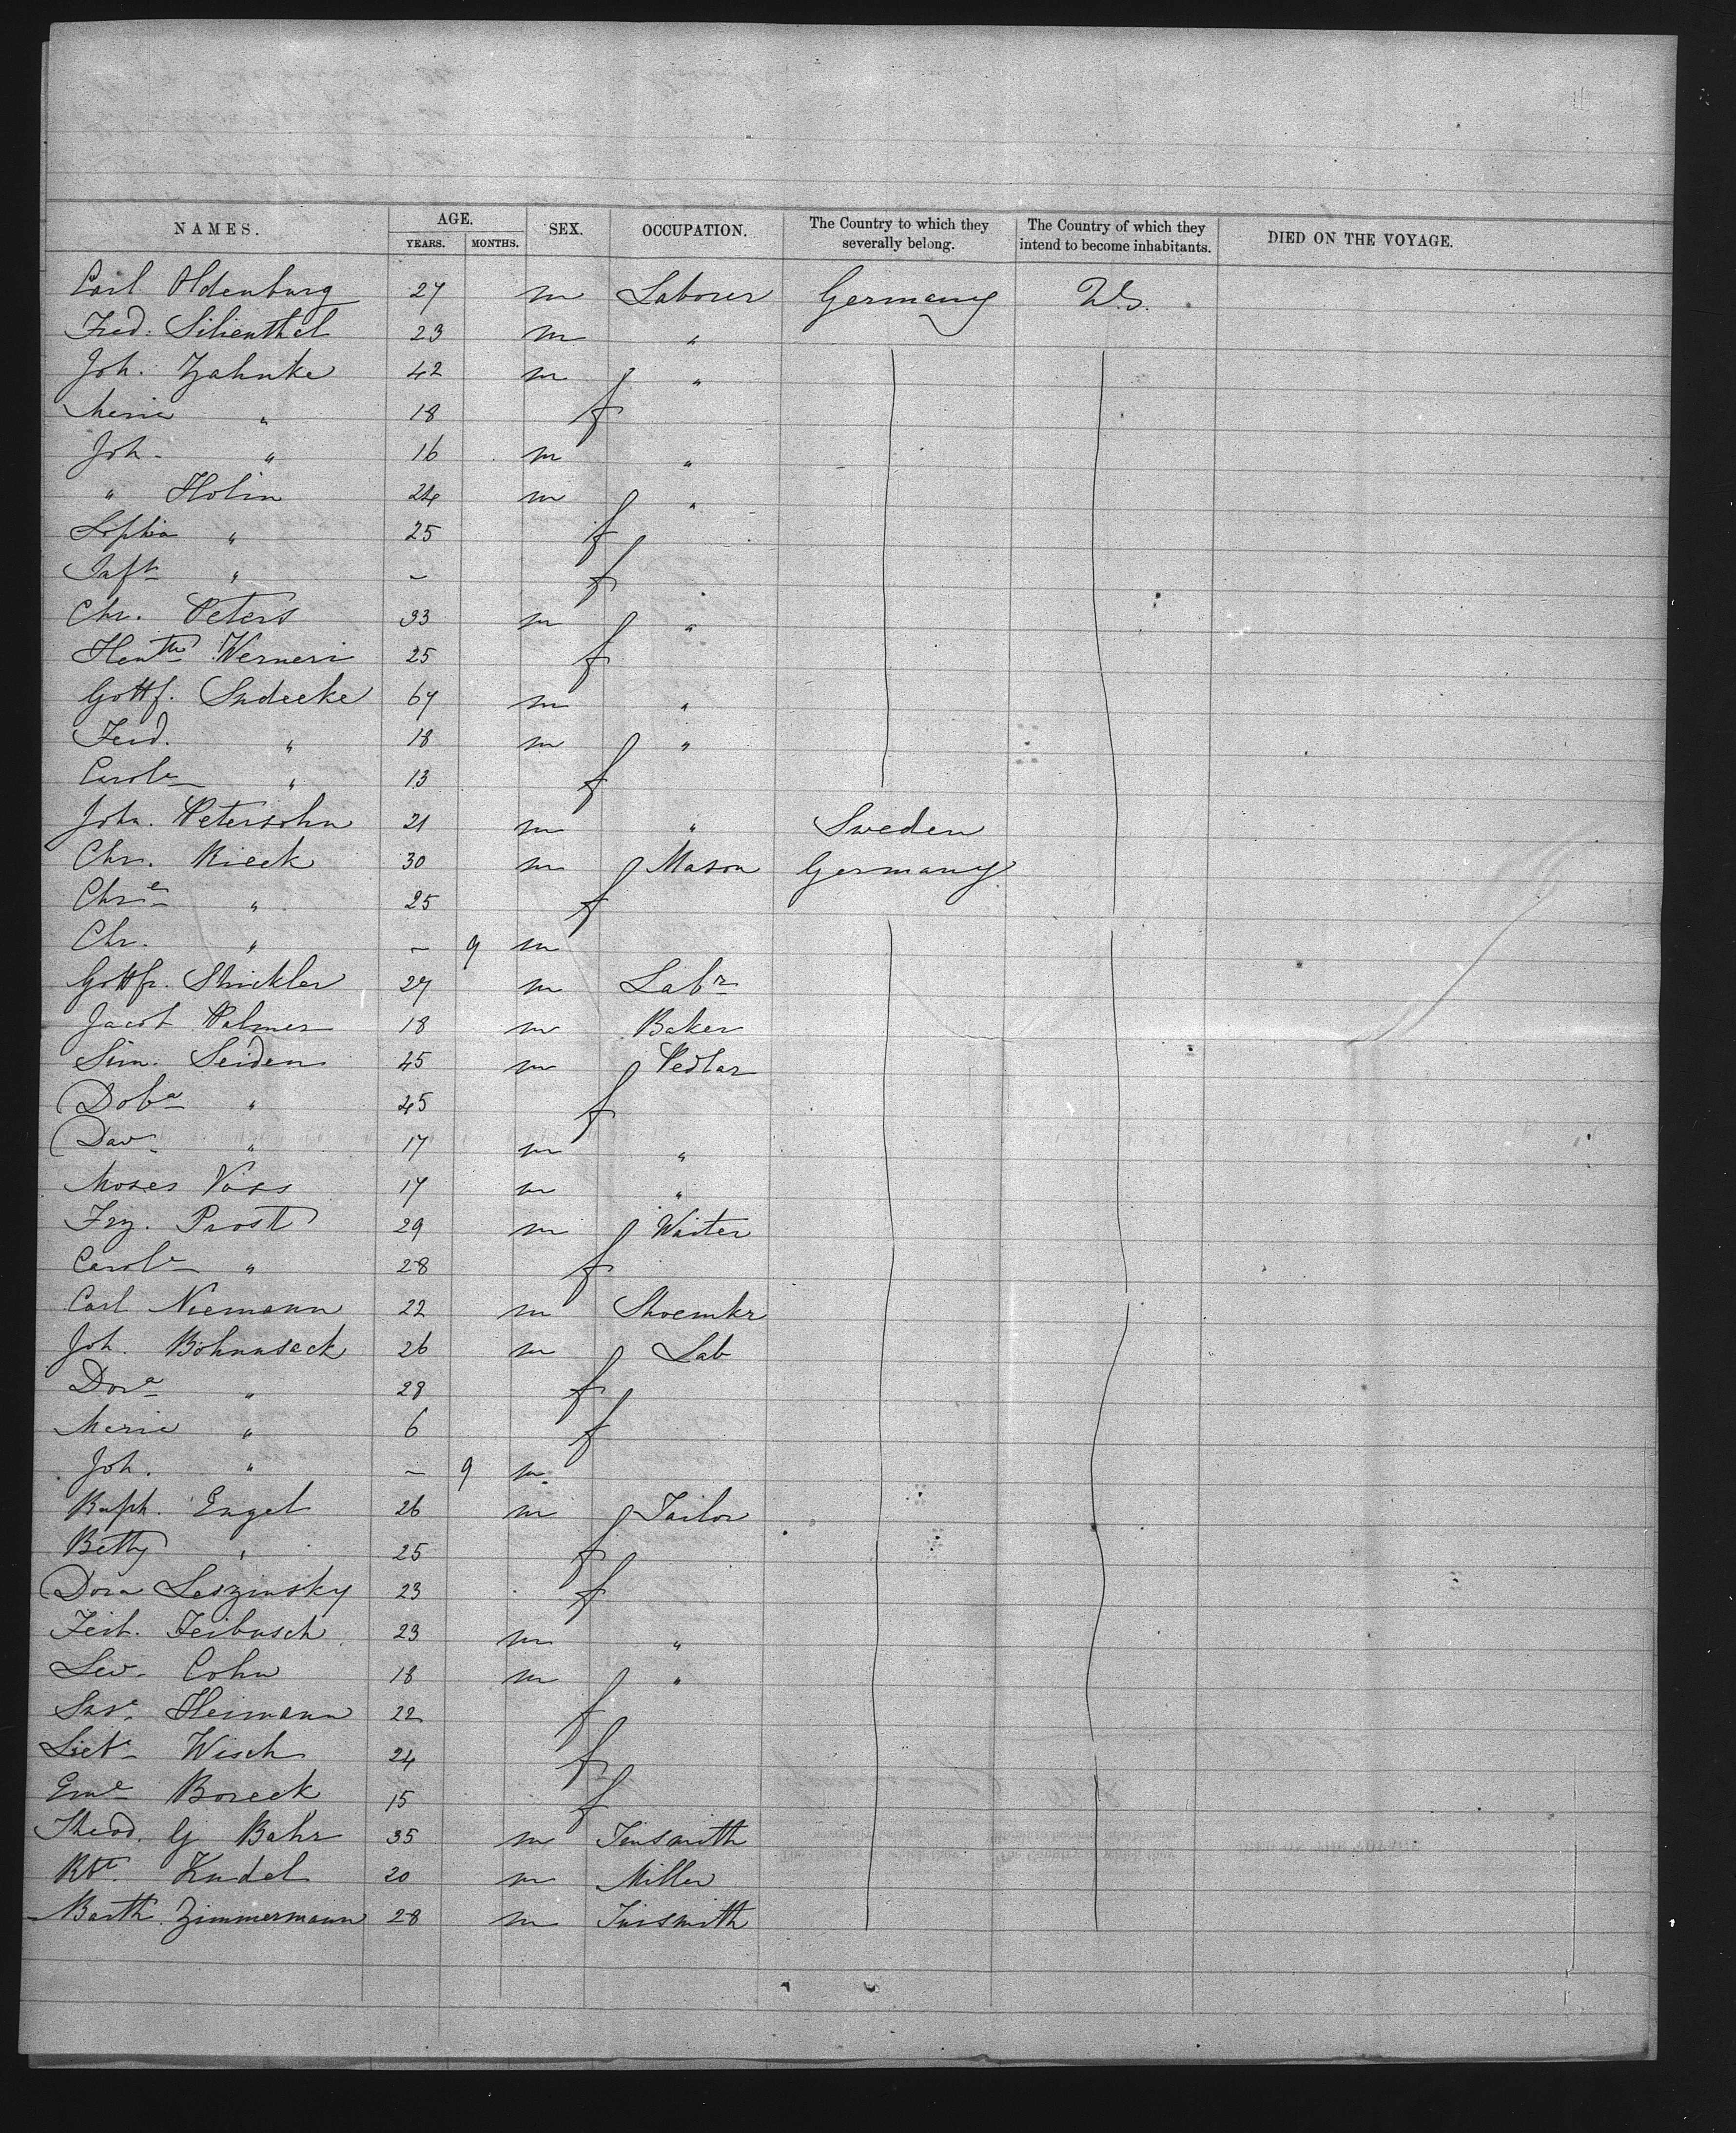 NAMES. AGE. YEARS. MONTHS. SEX. OCCUPATION. The Country to which they severally belong. The Country of which they intend to become inhabitants. DIED ON THE VOYAGE.
Carl Oldenburg 27 m Laborer Germany U.S.
Fred. Lilienthal 23 m "
Joh. Zahnke 42 m "
Marie " 18 f
Joh. " 16 m "
" Holin 24 m "
Sophia " 25 f
Inft " – f
Chr. Peters 33 m "
Hentte Werneri 25 f
Gottf. Sudecke 67 m "
Ferd. " 18 m "
Carole " 13 f
John. Petersohn 21 m " Sweden
Chr. Rieck 30 m Mason Germany
Chrie " 25 f
Chr. " – 9 m
Gottfr. Strickler 27 m Labr
Jacob Palmer 18 m Baker
Sim. Seiden 45 m Pedlar
Doba " 45 f
Dav. " 17 m "
Moses Voss 17 m "
Frz. Prost 29 m Waiter
Carole " 28 f
Carl Niemann 22 m Shoemkr
Joh. Bohnnsack 26 m Lab
Dora " 28 f
Marie " 6 f
Joh. " – 9 m
Raph. Engel 26 m Tailor
Betty " 25 f
Dora Leszinsky 23 f
Feib. Feibusch 23 m "
Lew. Cohn 18 m "
Heimann 22 f
Wisch 24 f
Eme Boreck 15 f
Theod. G Bahr 35 m Tinsmith
Rbt. Kudel 20 m Miller
Barth. Zimmermann 28 m Tinsmith